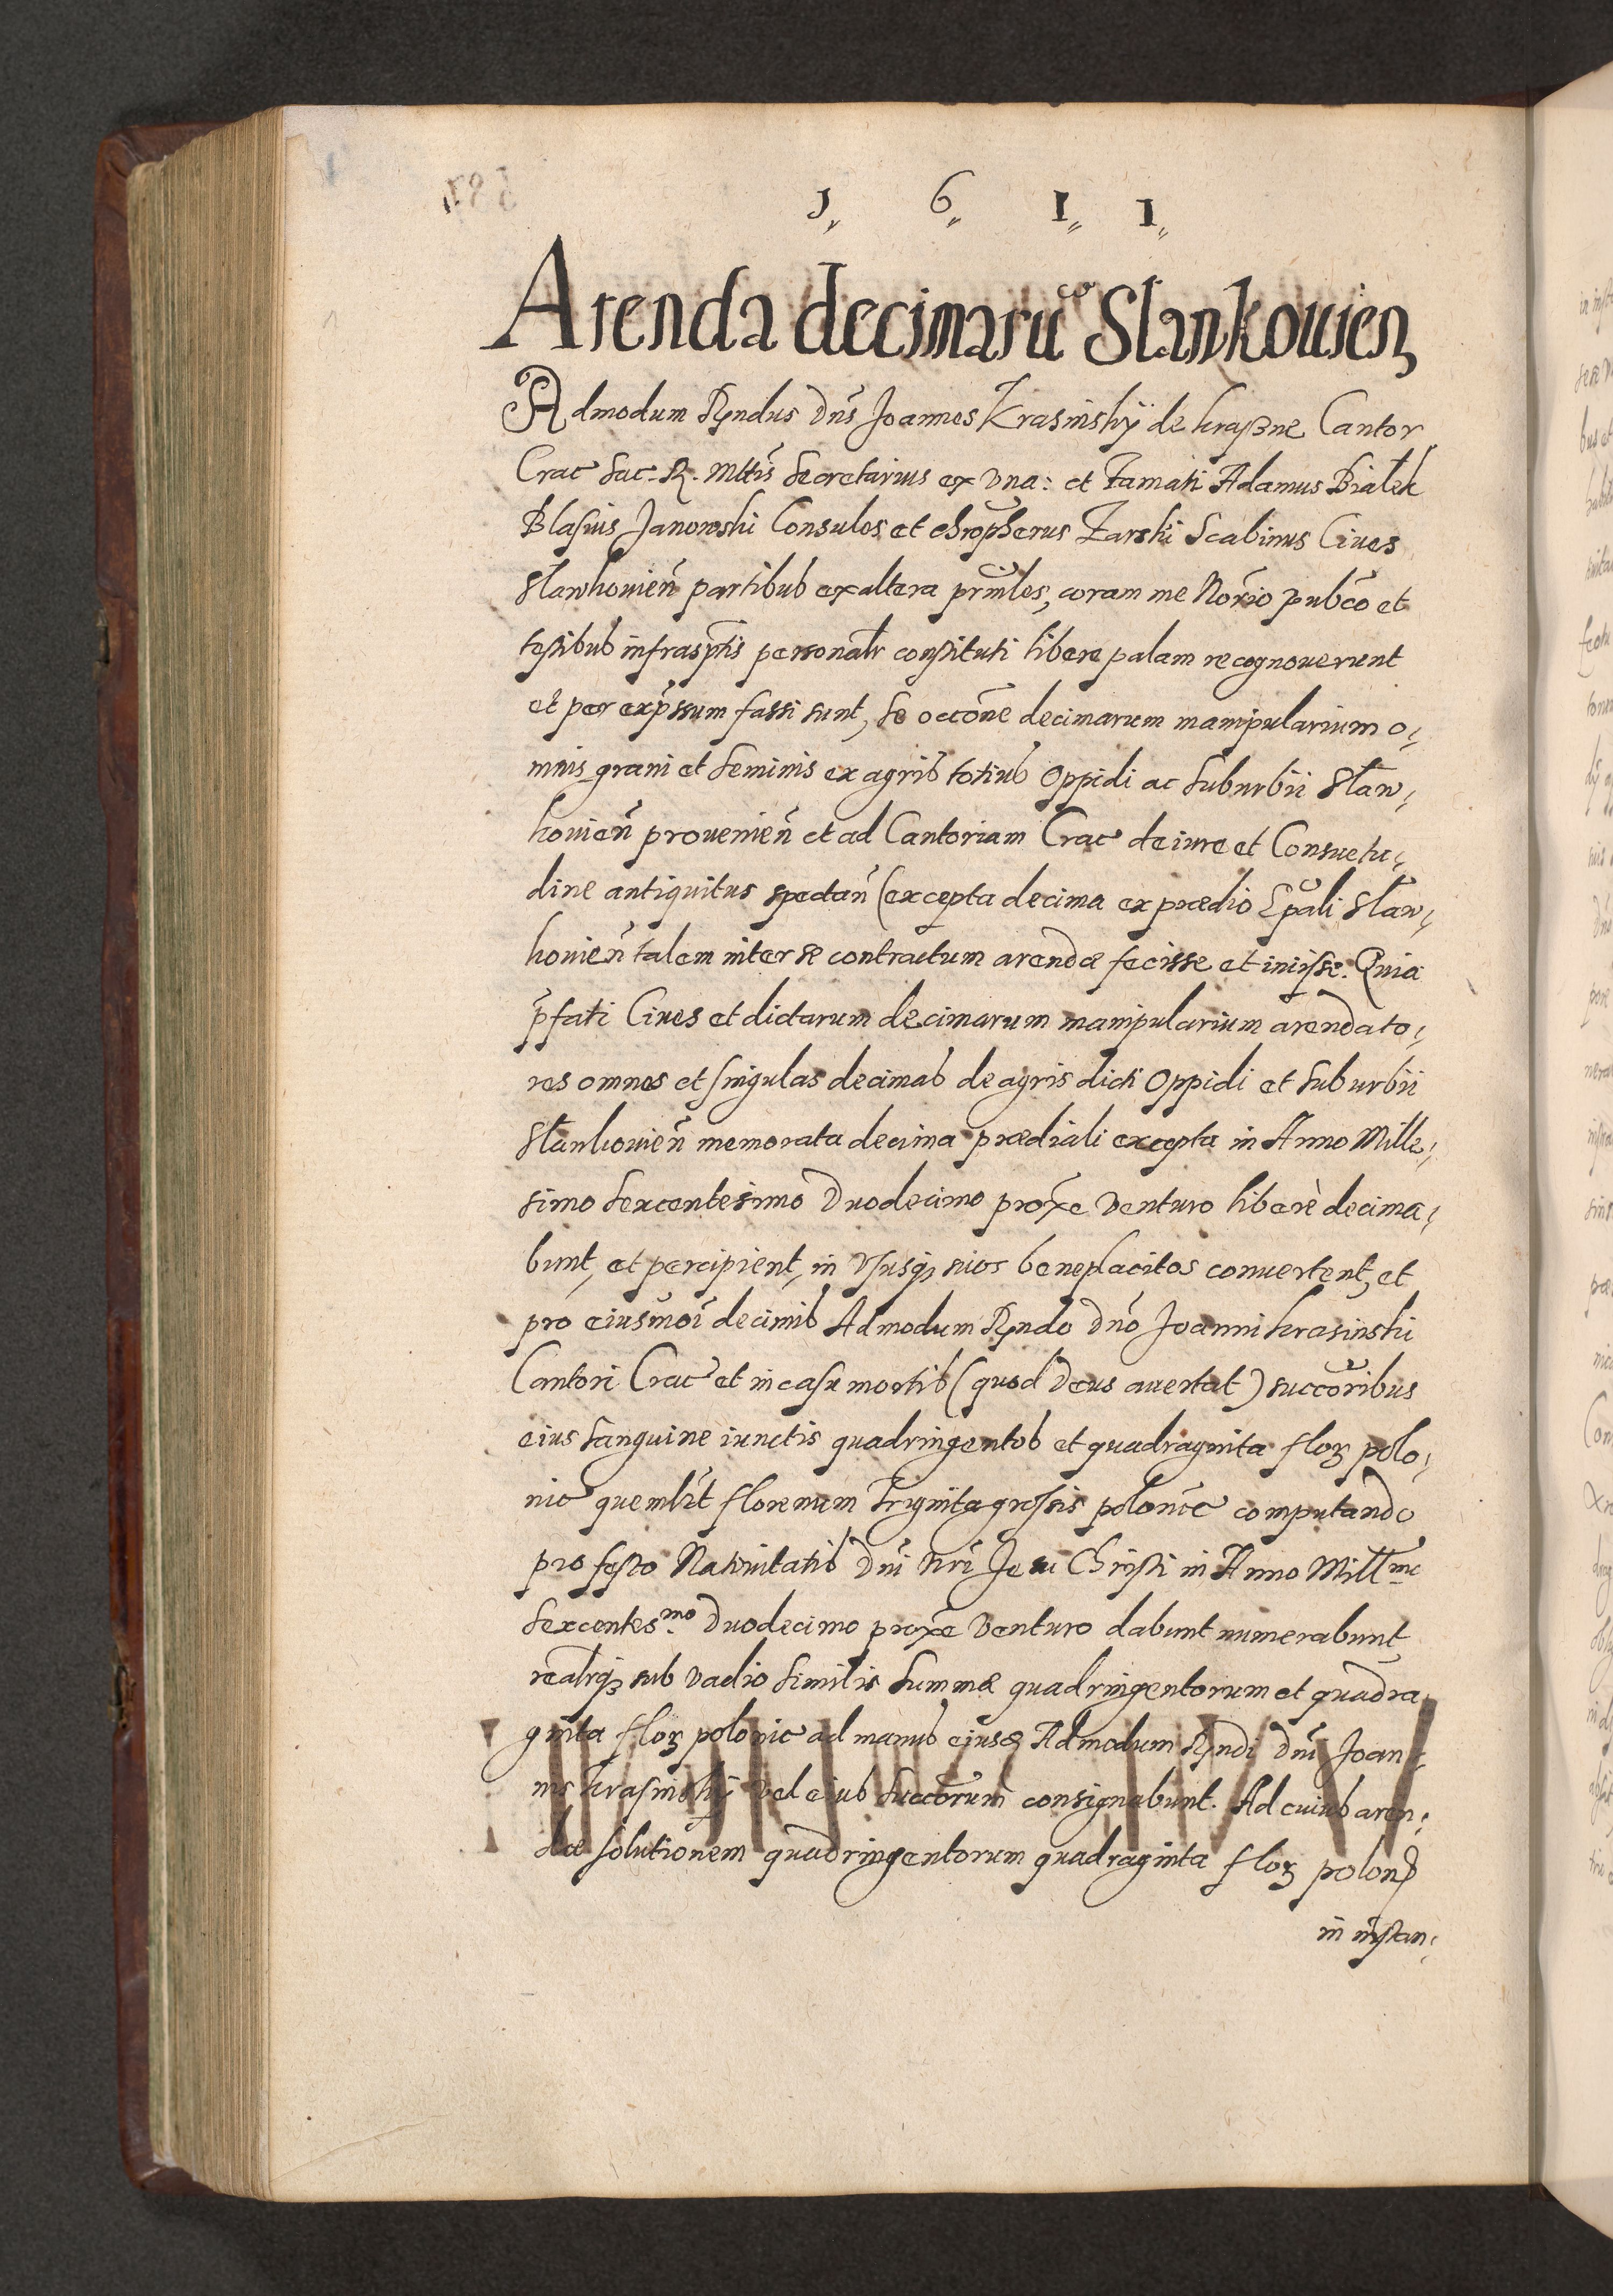 1 6 1 1
Arenda decimarū Slankouien
Admodum Rṇdus Dns̄ Joannes Krasinskÿ de kraszne Cantor
Crac Sac. R. Mttis Secretarius ex vna: et Famati Adamus Bialek
Blasius Janowski Consules et chrōpherus Zarski Scabinus Ciues
Slawkouien̄ partibus ex altera prn̄cipales, coram me Nor̄io pubc̄o et
testibus infrasptis̄ personalr constituti libere palam recognouerunt
et per exp̄ssum fassi sunt, se occōne decimarum manipularium o,
mnis grani et seminis ex agris totius Oppidi ac Suburbii Slaw,
kouien̄ prouenien̄ et ad Cantoriam Crac de iure et Consuetu,
dine antiquitus spectan̄ (excepta decima ex prædio Ep̄ali Slaw,
kouien̄ talem inter se contractum arendæ fecisse et iniisse. Quia
p̄fati Ciues et dictarum decimarum manipularium arendato,
res omnes et singulas decimas de agris dicti Oppidi et Suburbii
Slawkouien̄ memorata decima prædiali excepta in Anno Mille,
simo Sexcentesimo Duodecimo prox̄e venturo liberè decima,
bunt, et percipient, in vsusq₃ suos beneplacitos conuertent, et
pro eiusmōi decimis Admodum Rṇdo Dnō Joanni krasinski
Cantori Crac et in casu mortis (quod Deus auertat) succōribus
eius Sanguine iunctis quadringentos et quadraginta floꝝ polo,
nic quemlīt florenum Triginta grossis polonic̄ computando
pro festo Natiuitatis Dnī nrī Jesu Christi in Anno Mill̄mo
Sexcentes.mo Duodecimo prox̄e venturo dabunt numerabunt
realrq₃ sub vadio similis Summæ quadringentorum et quadra,
ginta floꝝ polonic ad manus eiusd Admodum Rṇdi Dnī Joan,
nis krasinskÿ vel eius Succōrum consignabunt. Ad cuius aren,
dæ solutionem quadringentorum quadraginta floꝝ polon
in instan,